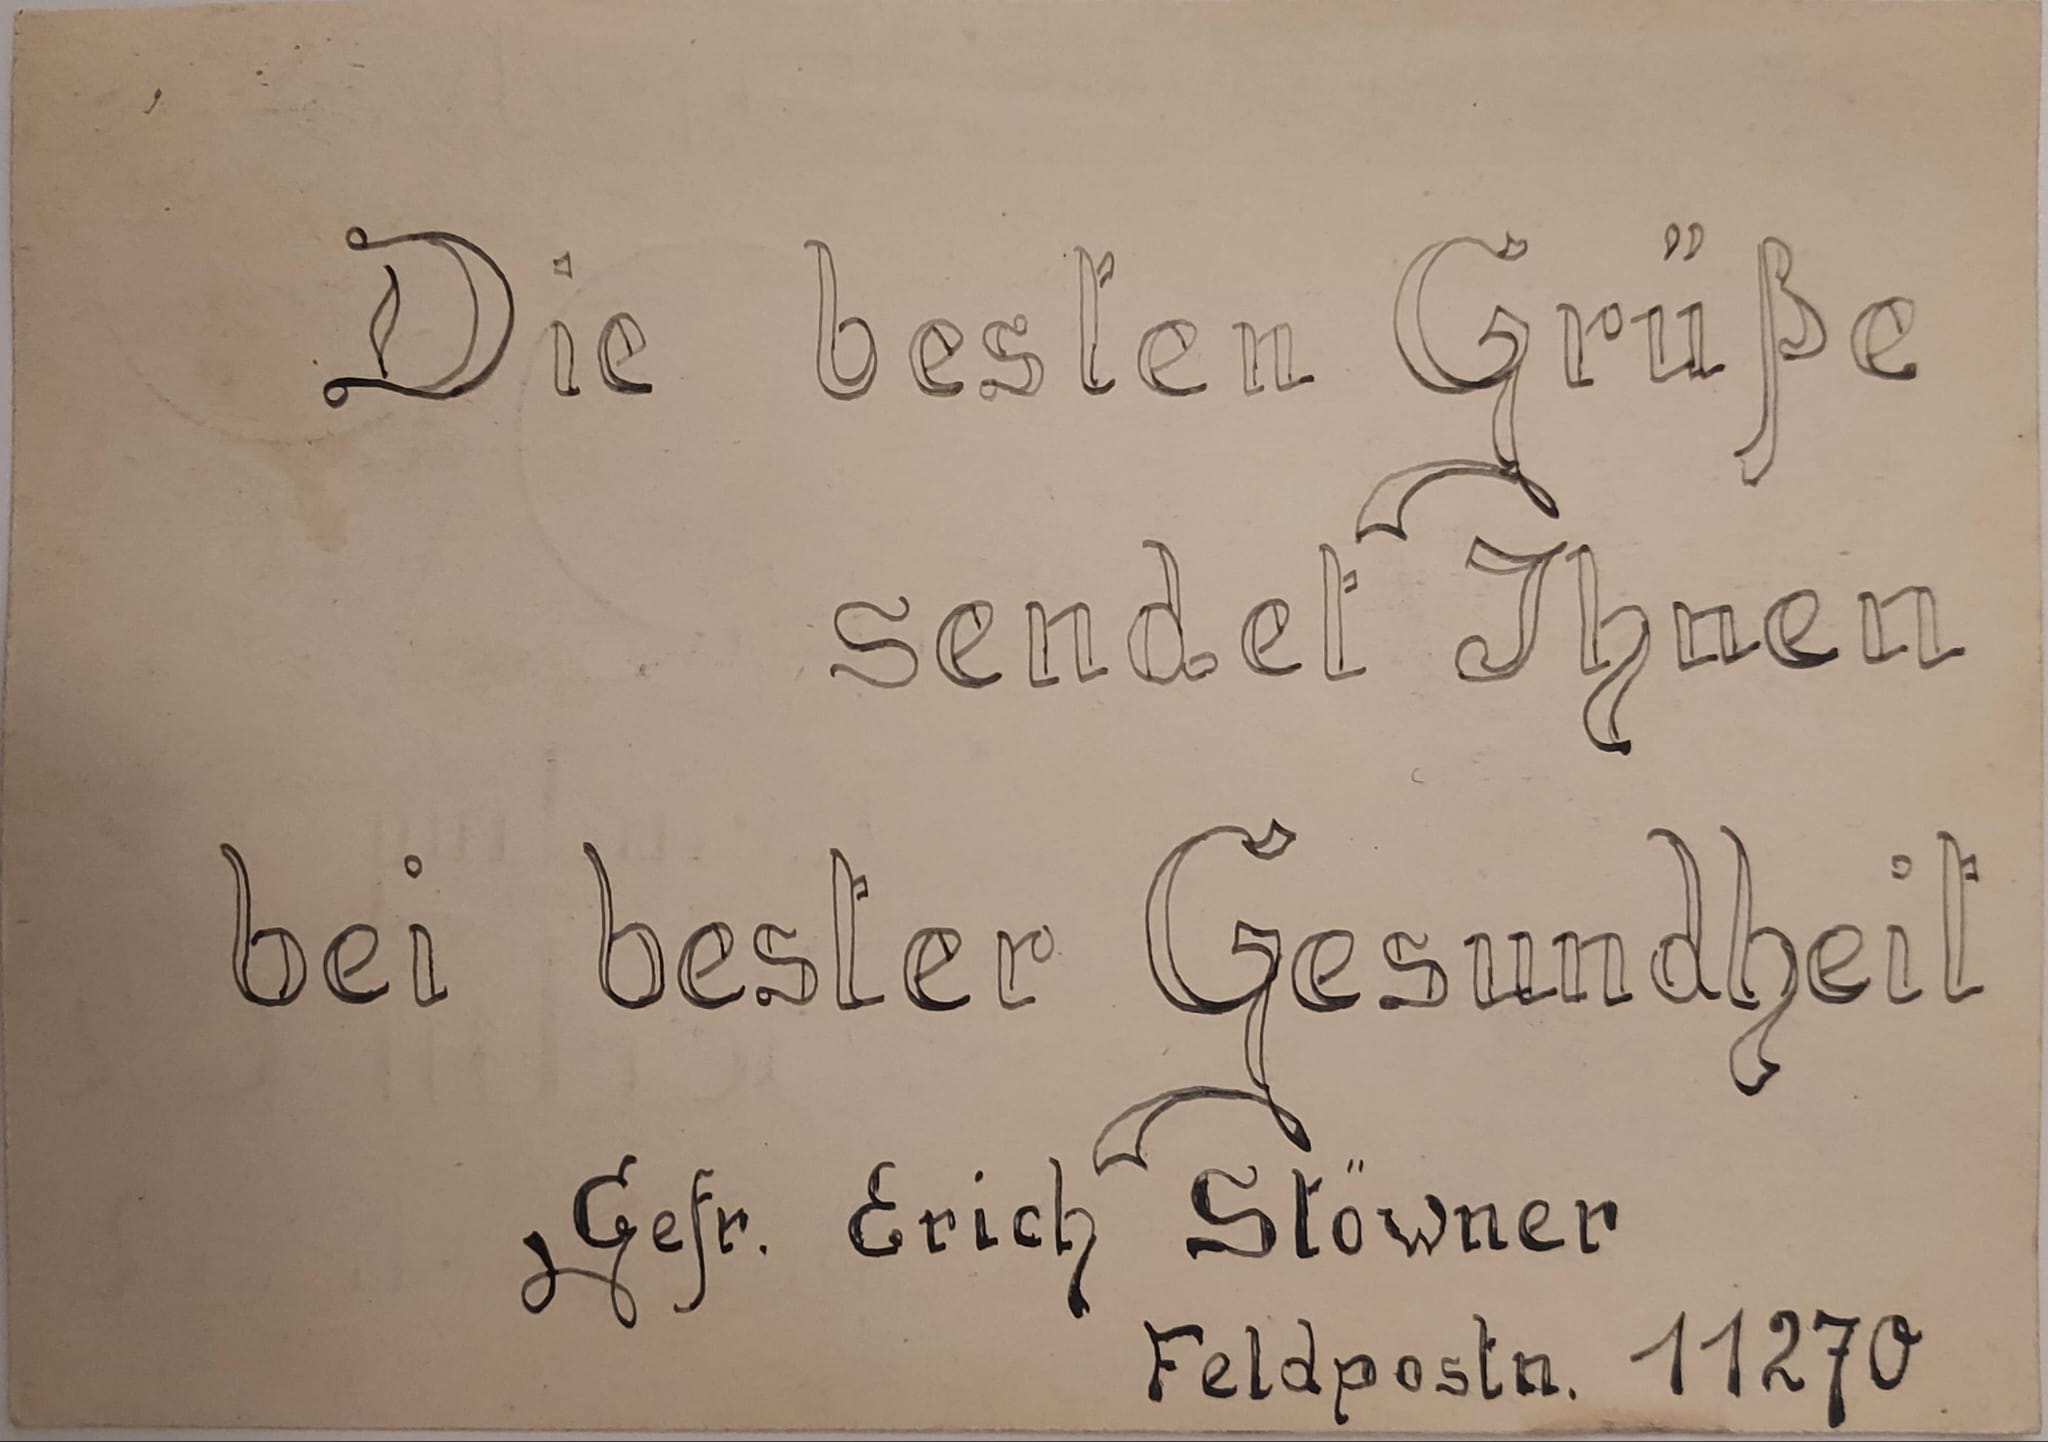 Die besten Grüße
sendet Ihnen
bei bester Gesundheit
Gefr. Erich Stöwner
Feldpostn. 11270